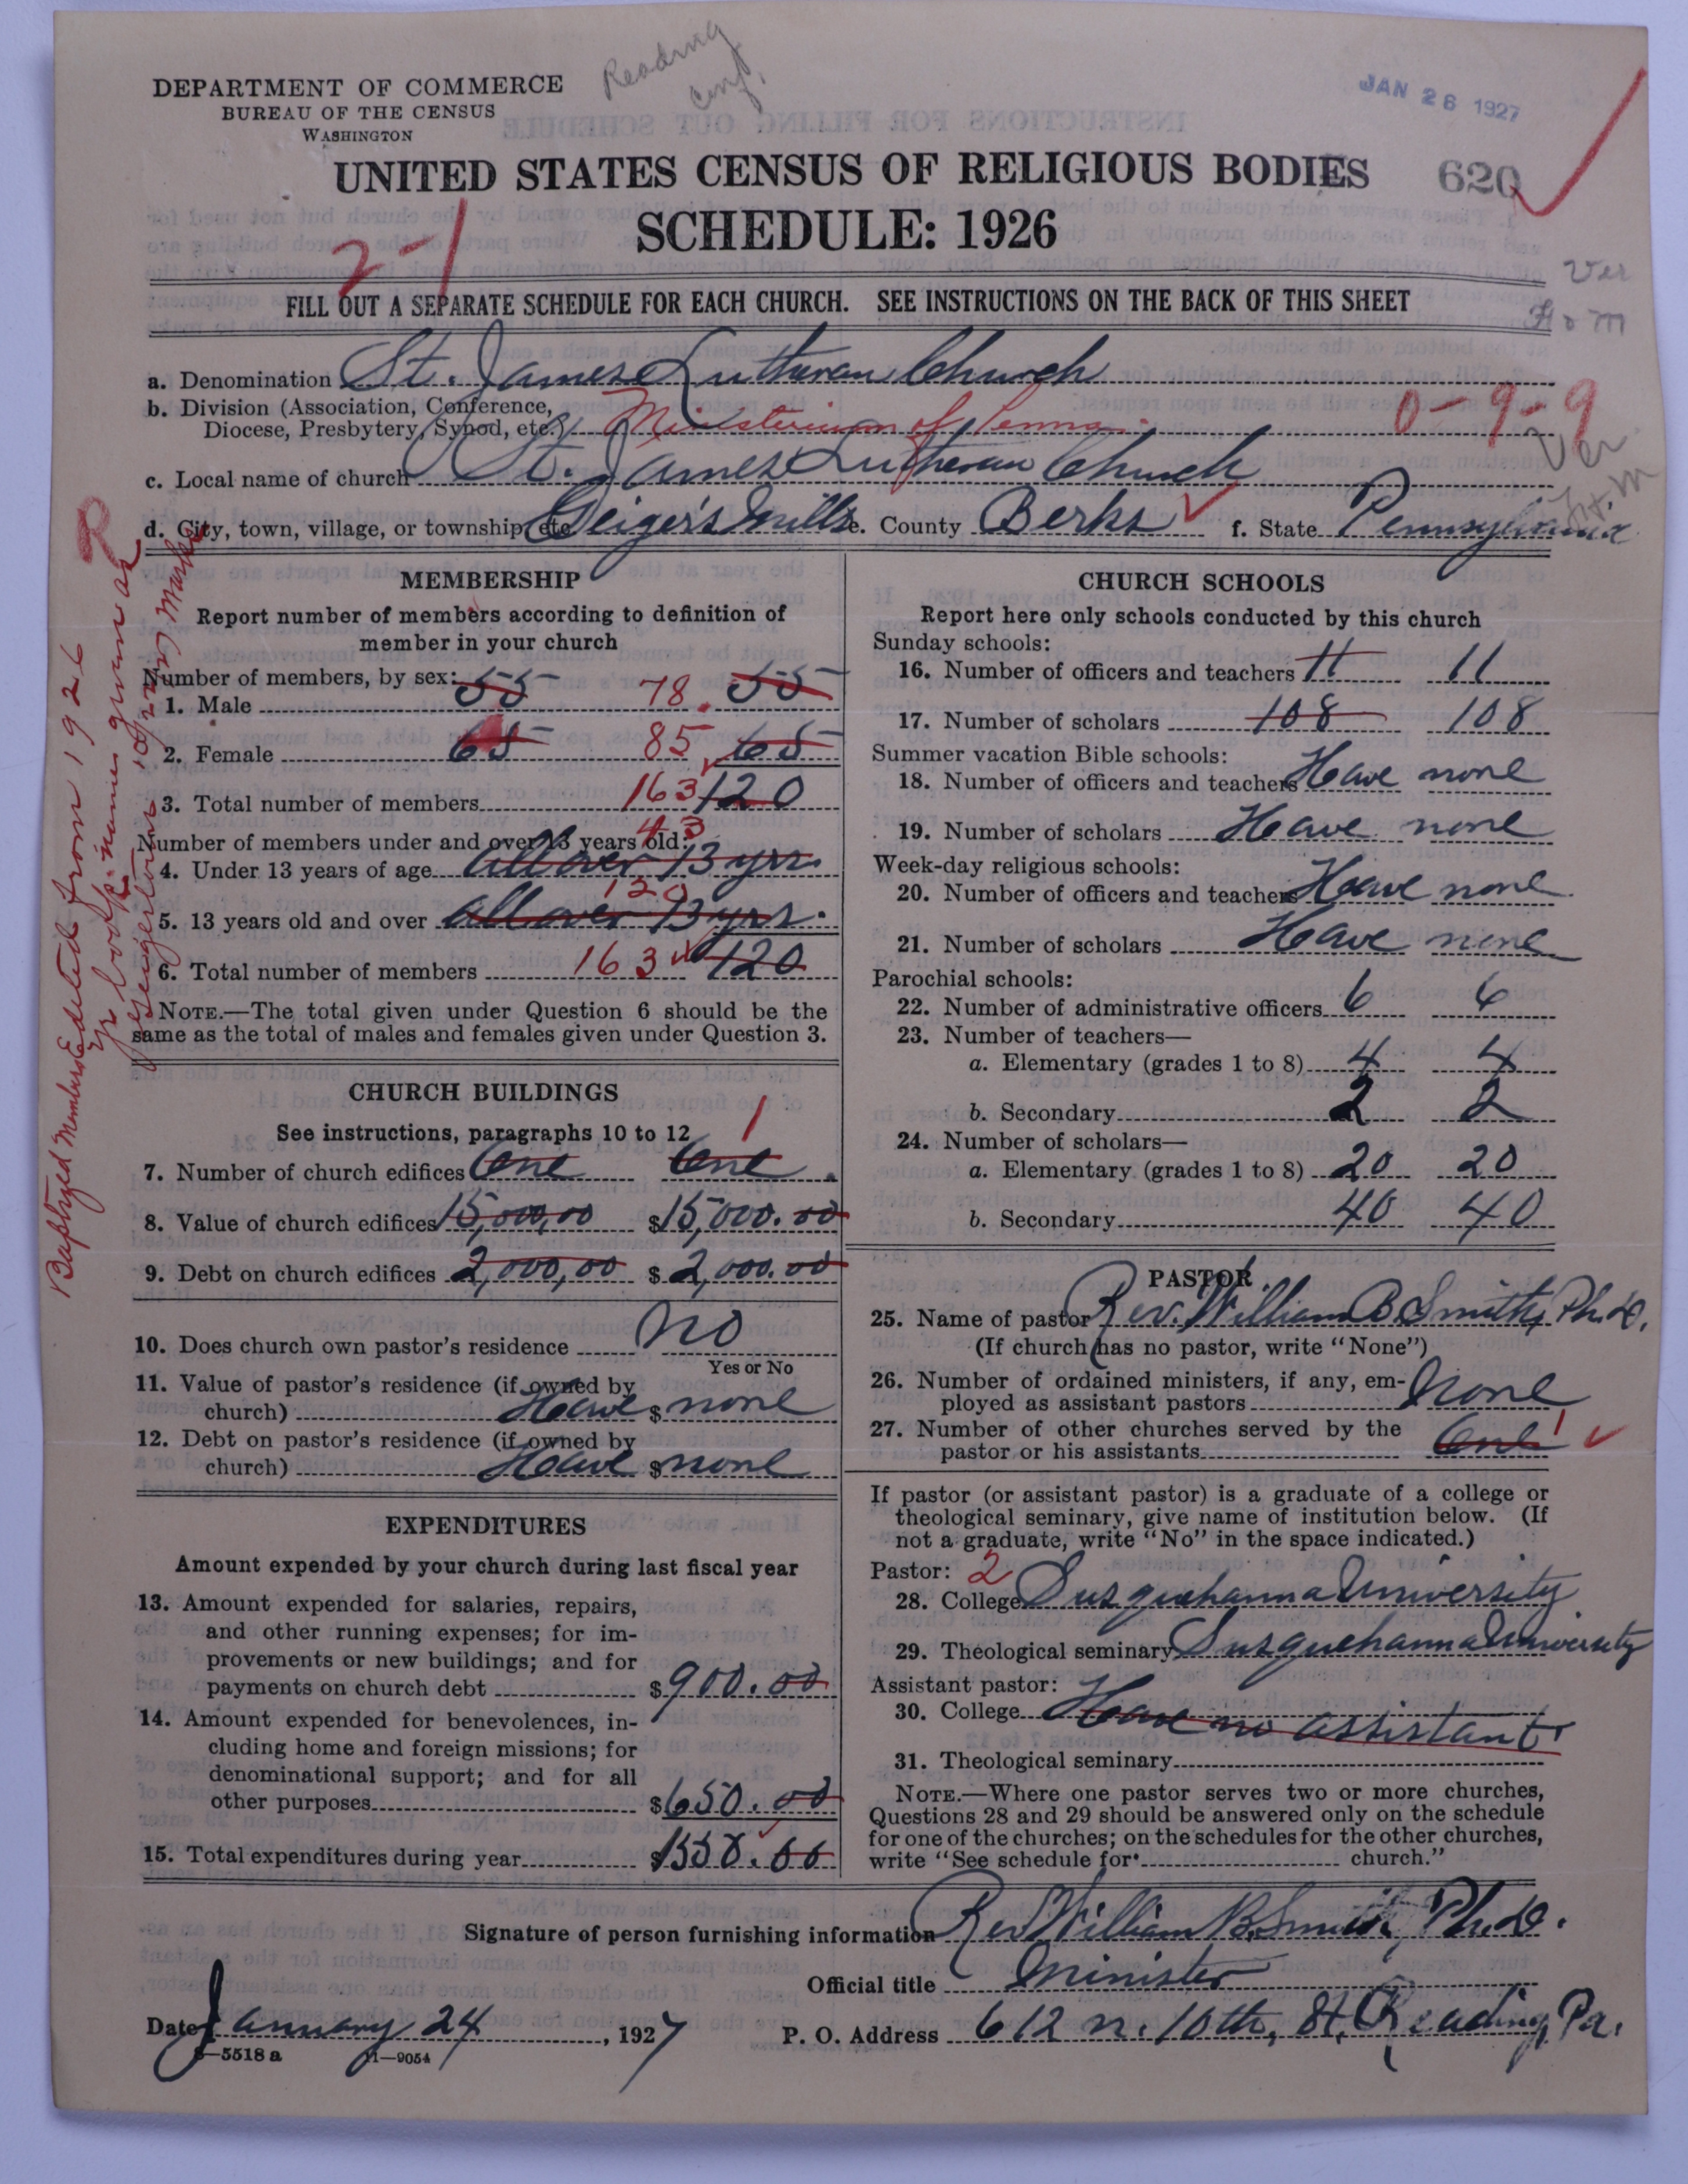 Reading
Conf.
DEPARTMENT OF COMMERCE
BUREAU OF THE CENSUS
WASHINGTON
JAN 26 1927
UNITED STATES CENSUS OF RELIGIOUS BODIES
620
SCHEDULE: 1926
2-1
Ver
FILL OUT A SEPARATE SCHEDULE FOR EACH CHURCH. SEE INSTRUCTIONS ON THE BACK OF THIS SHEET
a. Denomination St. James Lutheran Church
b. Division (Association, Conference,
Diocese, Presbytery, Synod, etc.) Ministerium of Penna. 0-9-9
Ver
c. Local name of church St. James Lutheran Church
H.M
d. City, town, village, or township, etc. Geiger's Mills e. County Berks f. State Pennsylvania
R
Baptized Members Edited from 1926
yr. book. names given as
MEMBERSHIP
Report number of members according to definition of
member in your church
Number of members, by sex:
1. Male 55 78 55
2. Female 65 85 65
3. Total number of members 163 120
Number of members under and over 13 years old:
43
4. Under 13 years of age All over 13 yrs
120
5. 13 years old and over All over 13 yrs.
6. Total number of members 163 120
NOTE.—The total given under Question 6 should be the
same as the total of males and females given under Question 3.
CHURCH BUILDINGS
See instructions, paragraphs 10 to 12
1
7. Number of church edifices One One
8. Value of church edifices 15,000,00 $15,000.00
9. Debt on church edifices 2,000,00 $2,000.00
10. Does church own pastor's residence No
Yes or No
11. Value of pastor's residence (if owned by
church) Have $ none
12. Debt on pastor's residence (if owned by
church) Have $ none
EXPENDITURES
Amount expended by your church during last fiscal year
13. Amount expended for salaries, repairs,
and other running expenses; for im-
provements or new buildings; and for
payments on church debt $900.00
14. Amount expended for benevolences, in-
cluding home and foreign missions; for
denominational support; and for all
other purposes $650.00
15. Total expenditures during year $1550.00
CHURCH SCHOOLS
Report here only schools conducted by this church
Sunday schools:
16. Number of officers and teachers 11 11
17. Number of scholars 108 108
Summer vacation Bible schools:
18. Number of officers and teachers Have none
19. Number of scholars Have none
Week-day religious schools:
20. Number of officers and teachers Have none
21. Number of scholars Have none
Parochial schools:
22. Number of administrative officers 6 6
23. Number of teachers—
a. Elementary (grades 1 to 8) 4 4
b. Secondary 2 2
24. Number of scholars—
a. Elementary (grades 1 to 8) 20 20
b. Secondary 40 40
PASTOR
25. Name of pastor Rev. William B. Smith, Ph.D.
(If church has no pastor, write "None")
26. Number of ordained ministers, if any, em-
ployed as assistant pastors None
27. Number of other churches served by the
pastor or his assistants One 1
If pastor (or assistant pastor) is a graduate of a college or
theological seminary, give name of institution below. (If
not a graduate, write "No" in the space indicated.)
Pastor: 2
28. College Susquehanna University
29. Theological seminary Susquehanna University
Assistant pastor:
30. College Have no assistant
31. Theological seminary
NOTE.—Where one pastor serves two or more churches,
Questions 28 and 29 should be answered only on the schedule
for one of the churches; on the schedules for the other churches,
write "See schedule for church."
Signature of person furnishing information Rev William B. Smith, Ph.D.
Official title Minister
Date January 24, 1927 P. O. Address 612 N. 10th, St. Reading, Pa.
8—5518 a 11—9054